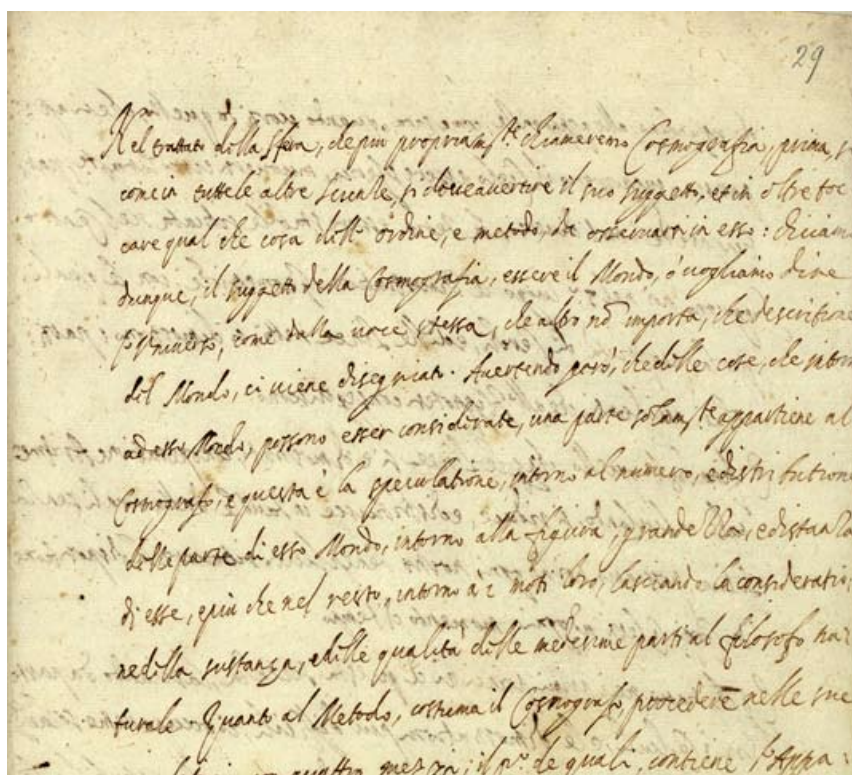 29
Nel trattato della sfera, che più propriam.te chiameremo Cosmografia, prima, si
come in tutte le altre scienze, si deve avertire il suo suggetto. et in oltre toc
care qual che cosa dell' ordine, e metodo, da osservarsi in esso: diciamo
dunque, il suggetto della Cosmografia, essere il Mondo, ò vogliamo dire
l'Universo, come dalla voce stessa, che altro nō importa, che descritione
del Mondo, ci viene disegniato. Avertendo però, che delle cose, che intorno
ad esso Mondo, possono esser considerate, una parte solam.te appartiene al
Cosmografo, e questa è la speculatione, intorno al numero, e distributione
delle parte di esso Mondo, intorno alla figura, grandezza, e distanza
di esse, e più che nel resto, intorno a i moti loro, lasciando la consideratio
ne della sustanza, e delle qualità delle medesime parti al filosofo na:
turale. Quanto al Metodo, costuma il Cosmografo procedere nelle sue
quattro mezzi; il p.o de quali, contiene l'Appa: